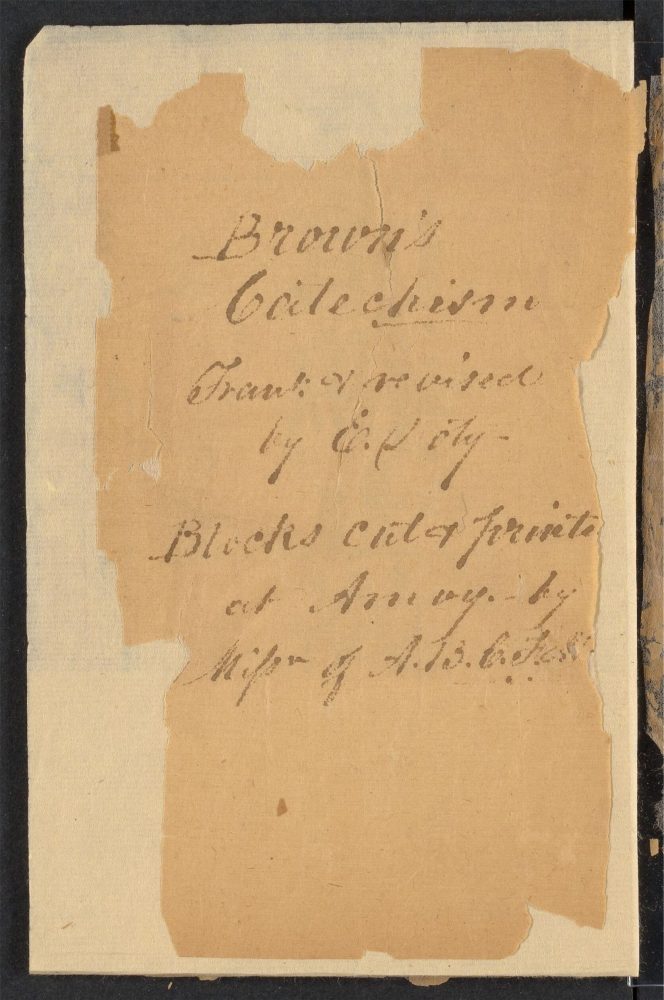 Brown's
Catechism
Trans. & revised
by E. Doty-
Blocks cut & printe
at Amoy.- by
Missn of A.B.C.F.